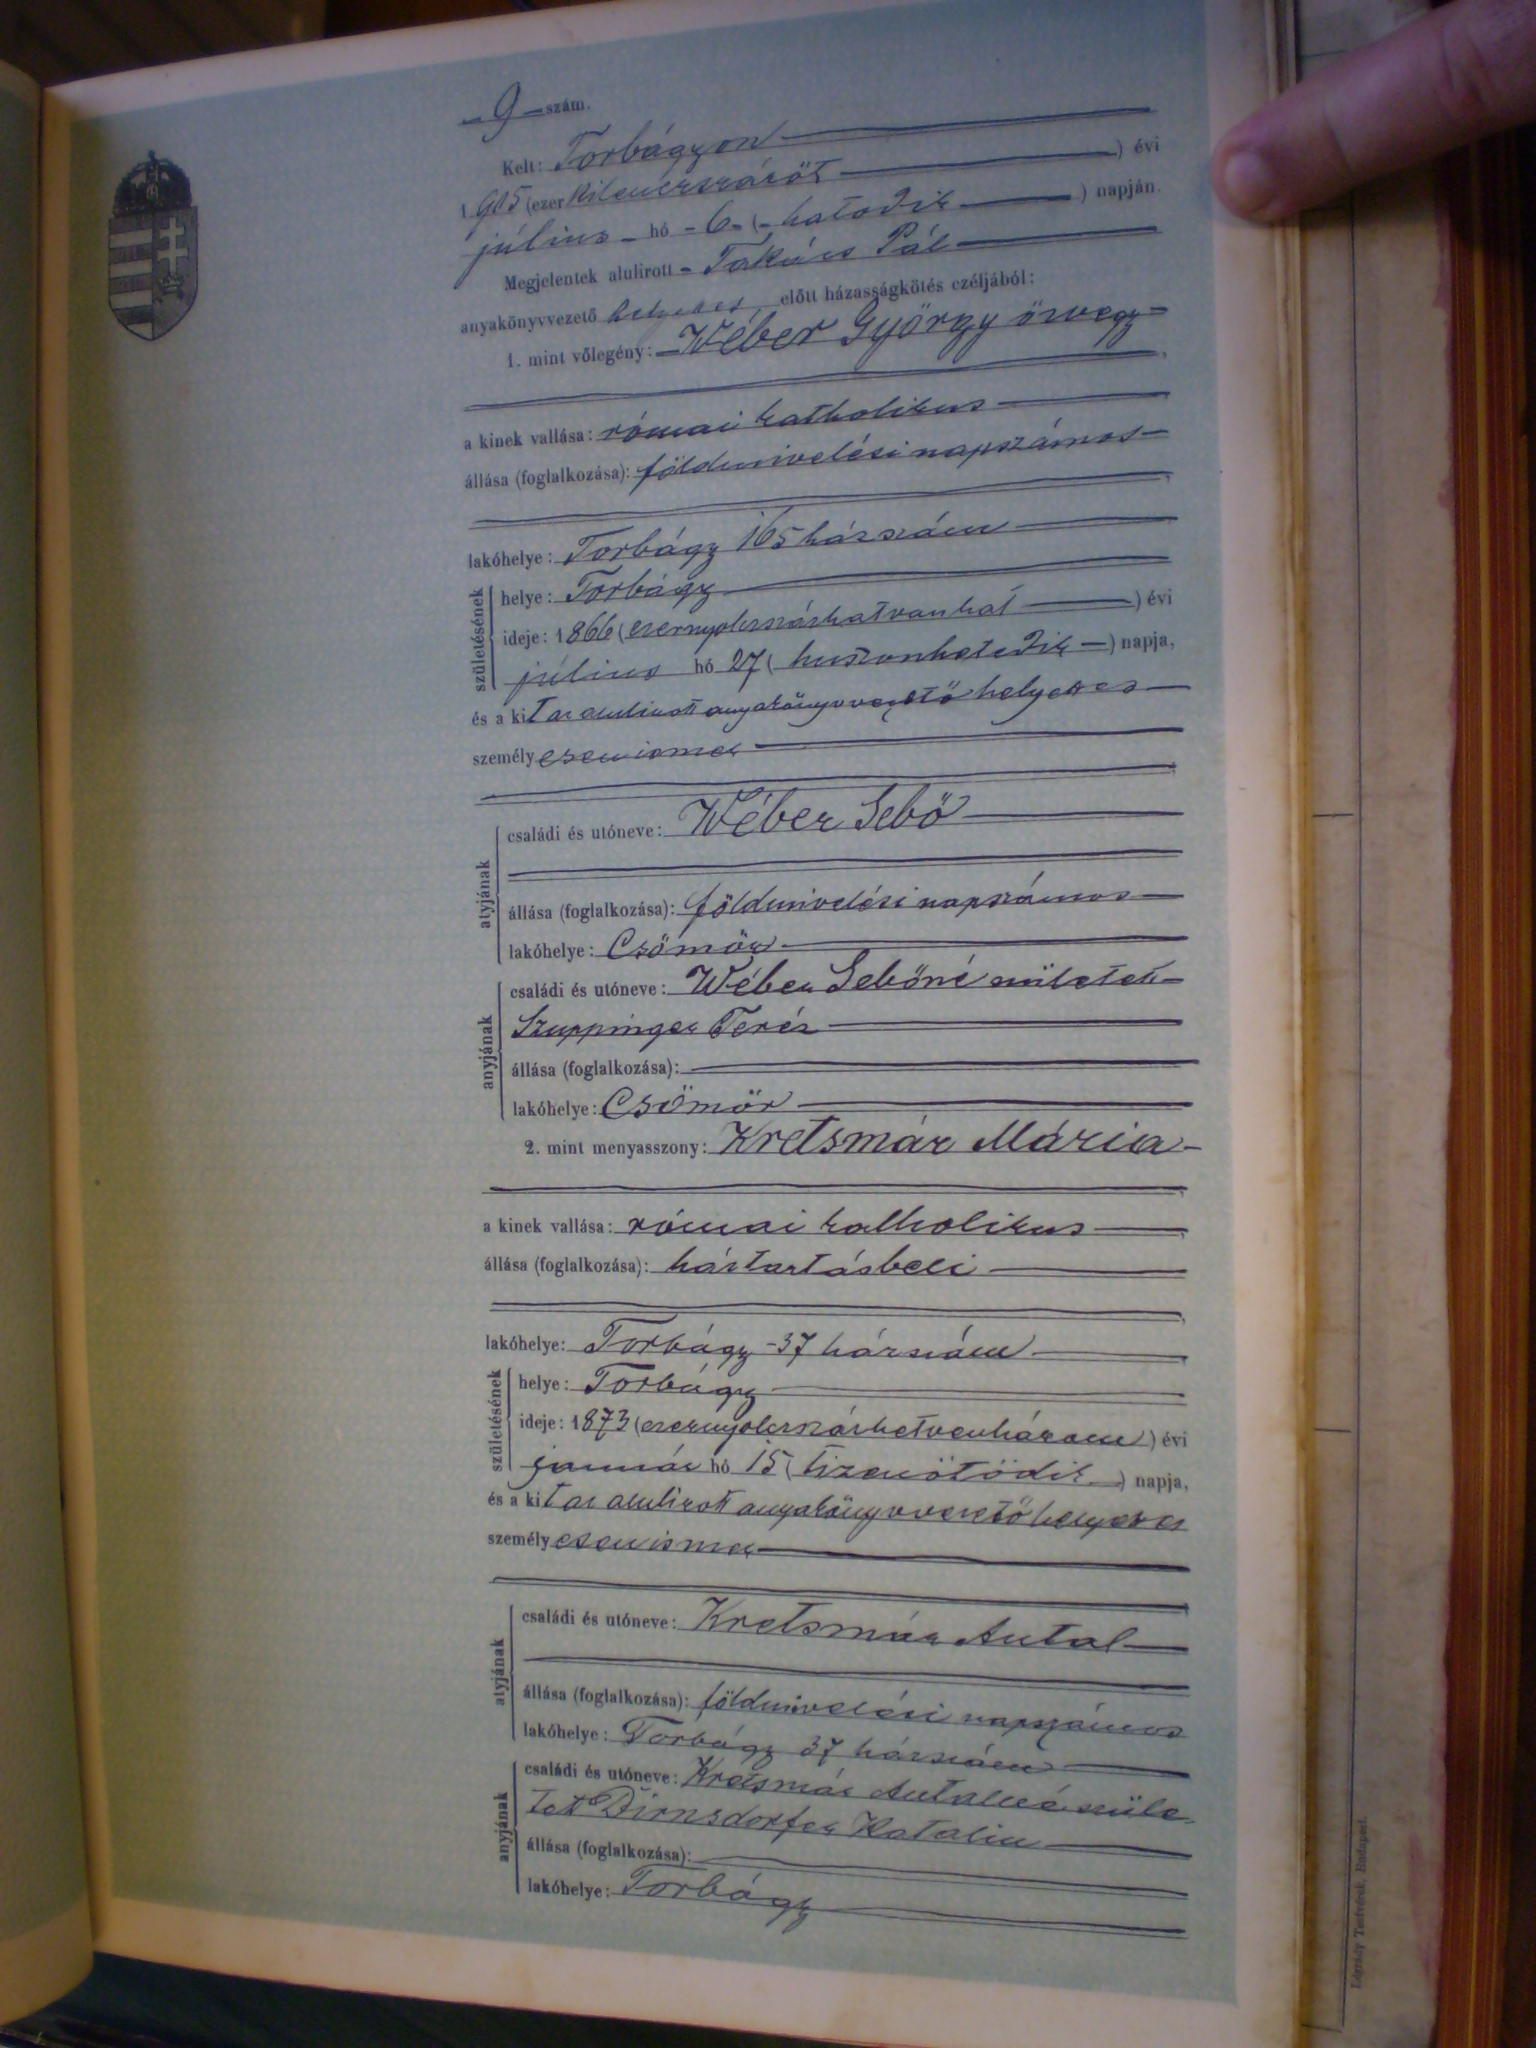 9 szám.
Kelt: Torbágyon
1905 (ezerkilenczszázöt) évi
július hó 6 (hatodik) napján.
Megjelentek alulirott Takács Pál
anyakönyvvezető helyettes előtt házasságkötés czéljából:
1. mint vőlegény: Wéber György özvegy
a kinek vallása: római katholikus
állása (foglalkozása): földmivelési napszámos
lakóhelye: Torbágy 165 házszám
születésének
helye: Torbágy
ideje: 1866 (ezernyolczszázhatvanhat) évi
július hó 27 (huszonhetedik) napja,
és a kit az alulirott anyakönyvvezető helyettes
személyesen ismer
atyjának
családi és utóneve: Wéber Sebő
állása (foglalkozása): földmivelési napszámos
lakóhelye: Csömör
anyjának
családi és utóneve: Wéber Sebőné született
Szuppinger Teréz
állása (foglalkozása):
lakóhelye: Csömör
2. mint menyasszony: Kretsmár Mária
a kinek vallása: római katholikus
állása (foglalkozása): háztartásbeli
lakóhelye: Torbágy 37 házszám
születésének
helye: Torbágy
ideje: 1873 (ezernyolczszázhetvenhárom) évi
január hó 15 (tizenötödik) napja,
és a kit az alulirott anyakönyvvezető helyettes
személyesen ismer
atyjának
családi és utóneve: Kretsmár Antal
állása (foglalkozása): földmivelési napszámos
lakóhelye: Torbágy 37 házszám
anyjának
családi és utóneve: Kretsmár Antalné szüle-
tett Dirnsdorfer Katalin
állása (foglalkozása):
lakóhelye: Torbágy
Légrády Testvérek, Budapest.